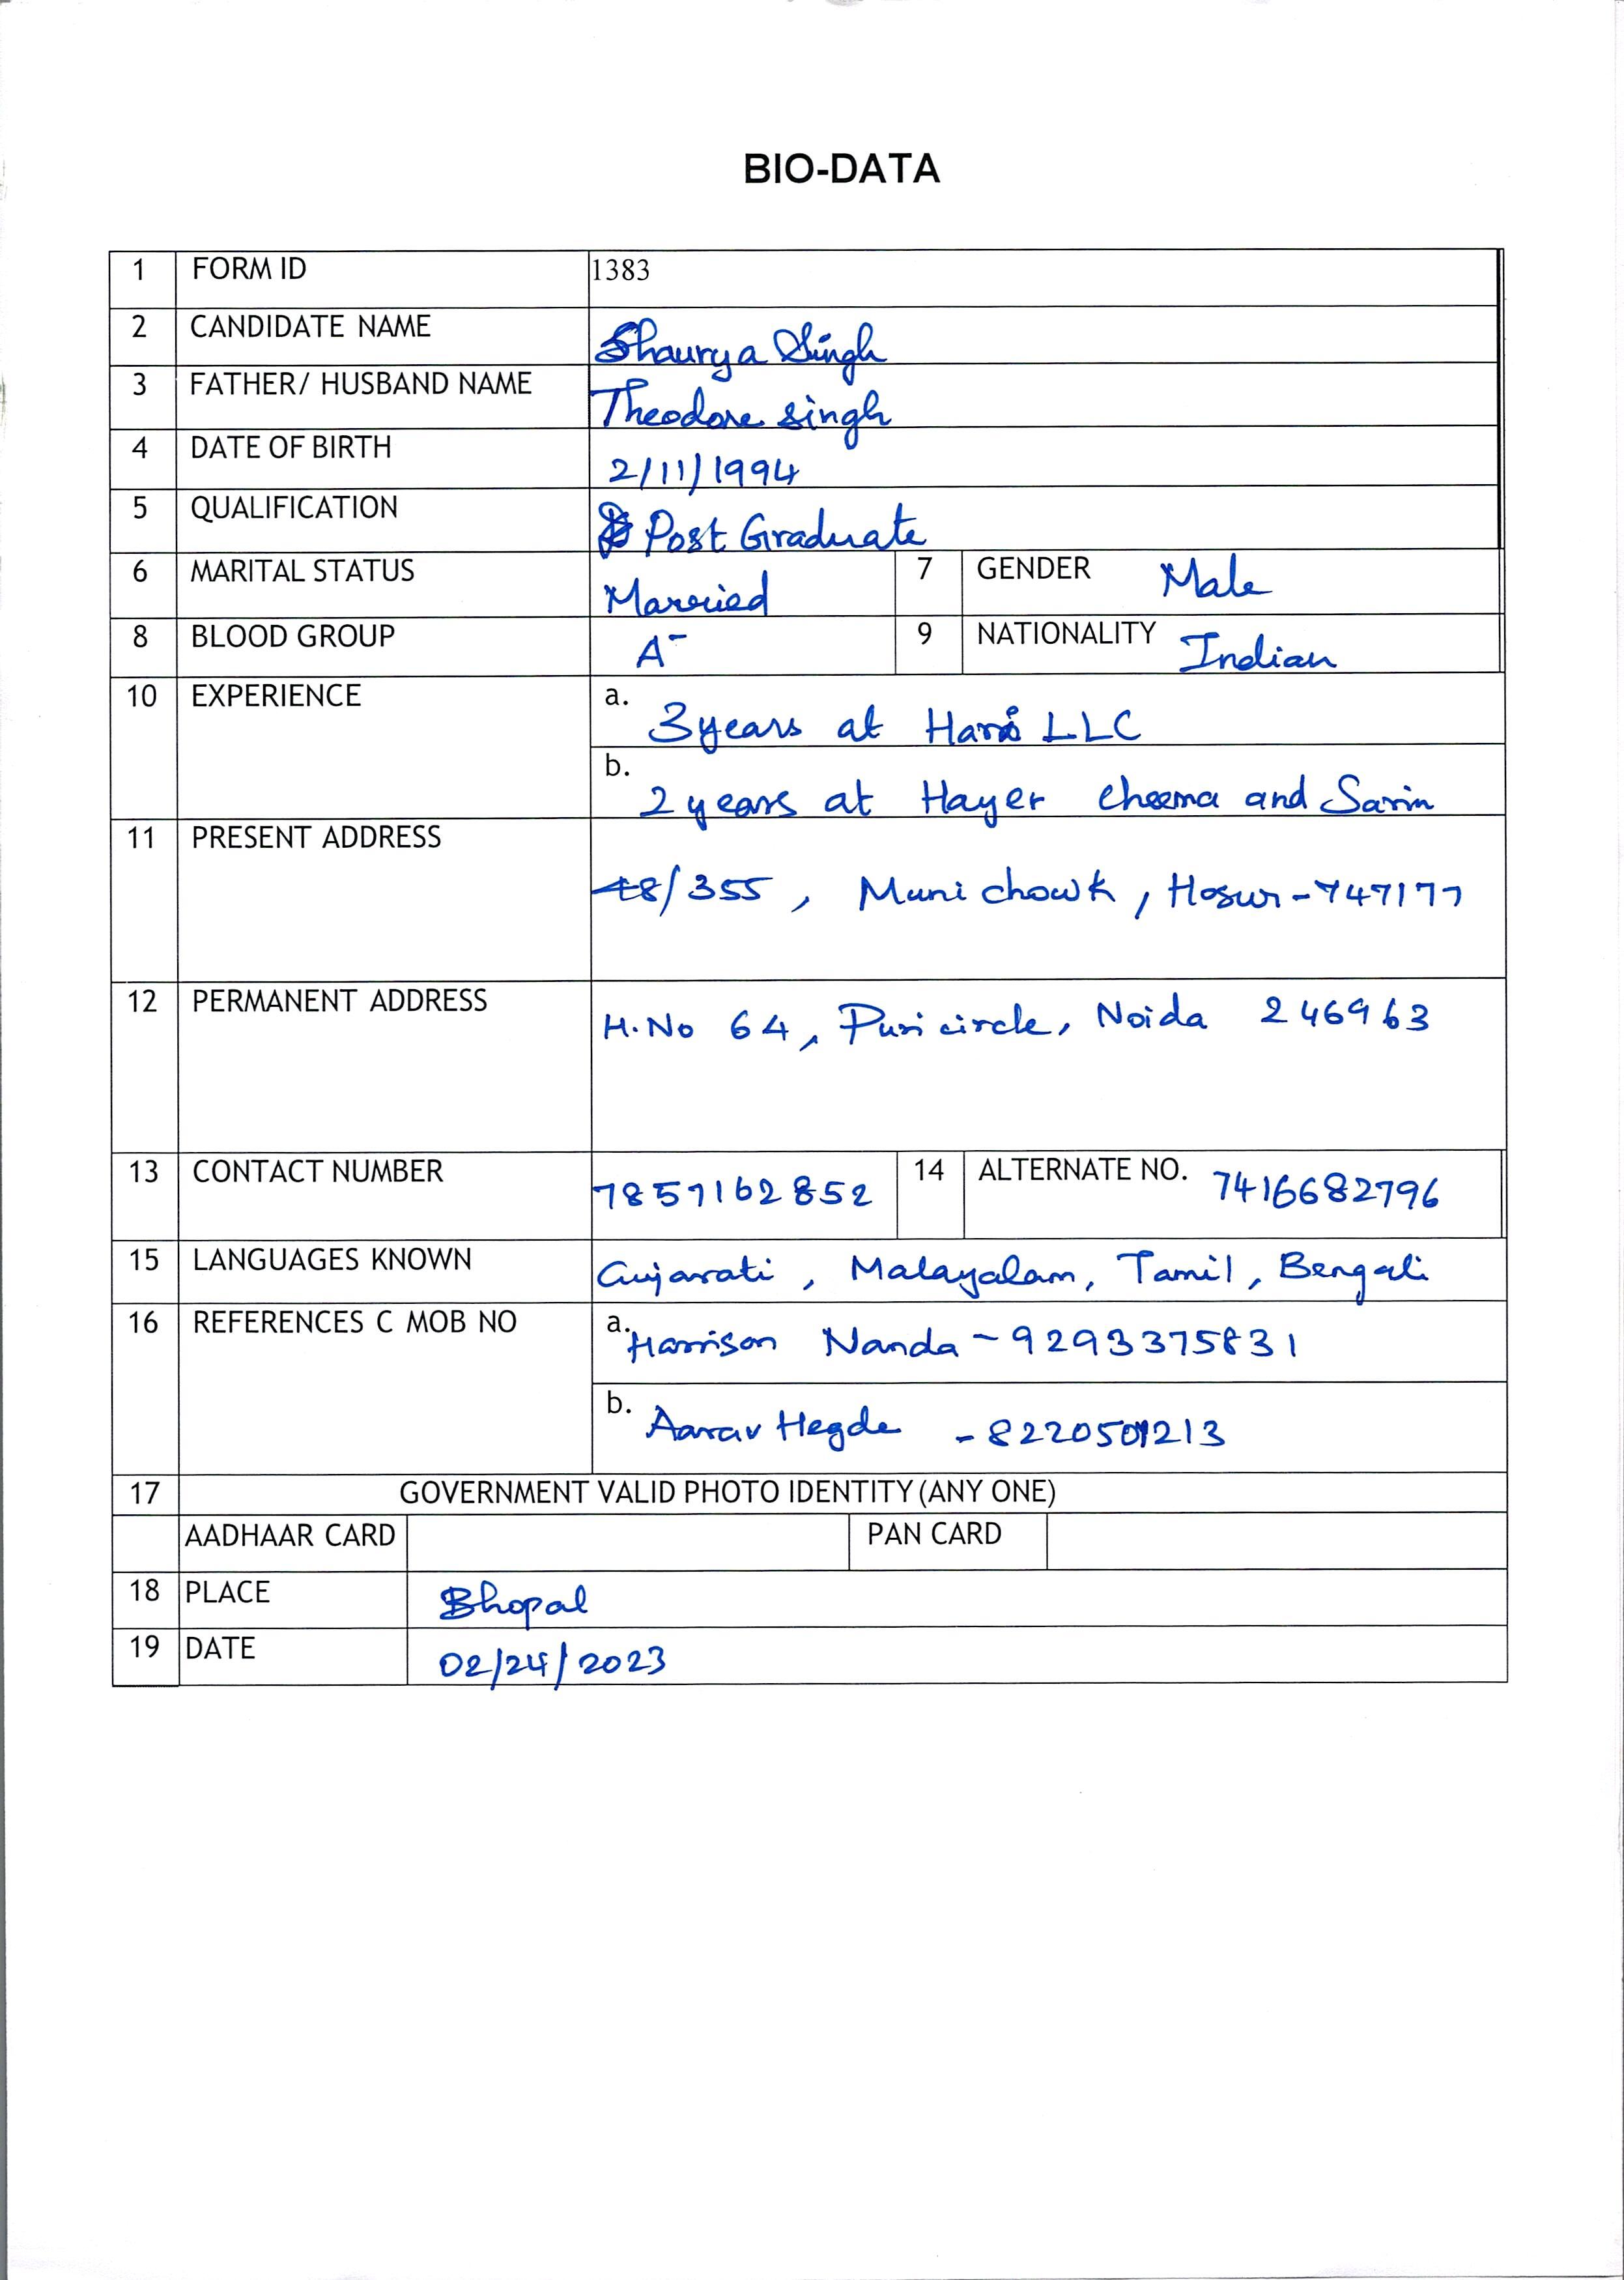 BIO-DATA
1 FORM ID 1383
2 CANDIDATE NAME Shaurya Singh
3 FATHER/ HUSBAND NAME Theodore Singh
4 DATE OF BIRTH 2/11/1994
5 QUALIFICATION Post Graduate
6 MARITAL STATUS Married 7 GENDER Male
8 BLOOD GROUP A- 9 NATIONALITY Indian
10 EXPERIENCE a. 3 years at Hans LLC
b. 2 years at Hayer Cheema and Sarin
11 PRESENT ADDRESS 48/355, Muni chowk, Hosur-747177
12 PERMANENT ADDRESS H.No 64, Puri circle, Noida 246963
13 CONTACT NUMBER 7857162852 14 ALTERNATE NO. 7416682796
15 LANGUAGES KNOWN Gujarati, Malayalam, Tamil, Bengali
16 REFERENCES C MOB NO a. Harrison Nanda - 9293375831
b. Aarav Hegde - 8220501213
17 GOVERNMENT VALID PHOTO IDENTITY (ANY ONE)
AADHAAR CARD PAN CARD
18 PLACE Bhopal
19 DATE 02/24/2023